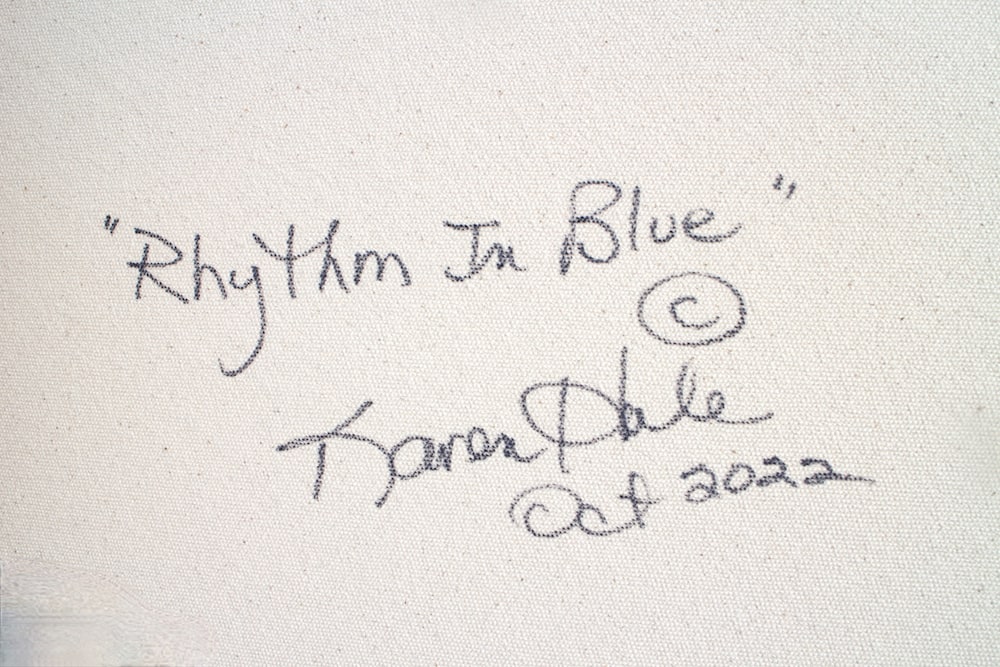 "Rhythm In Blue"
©
Karen Hale
Oct 2022